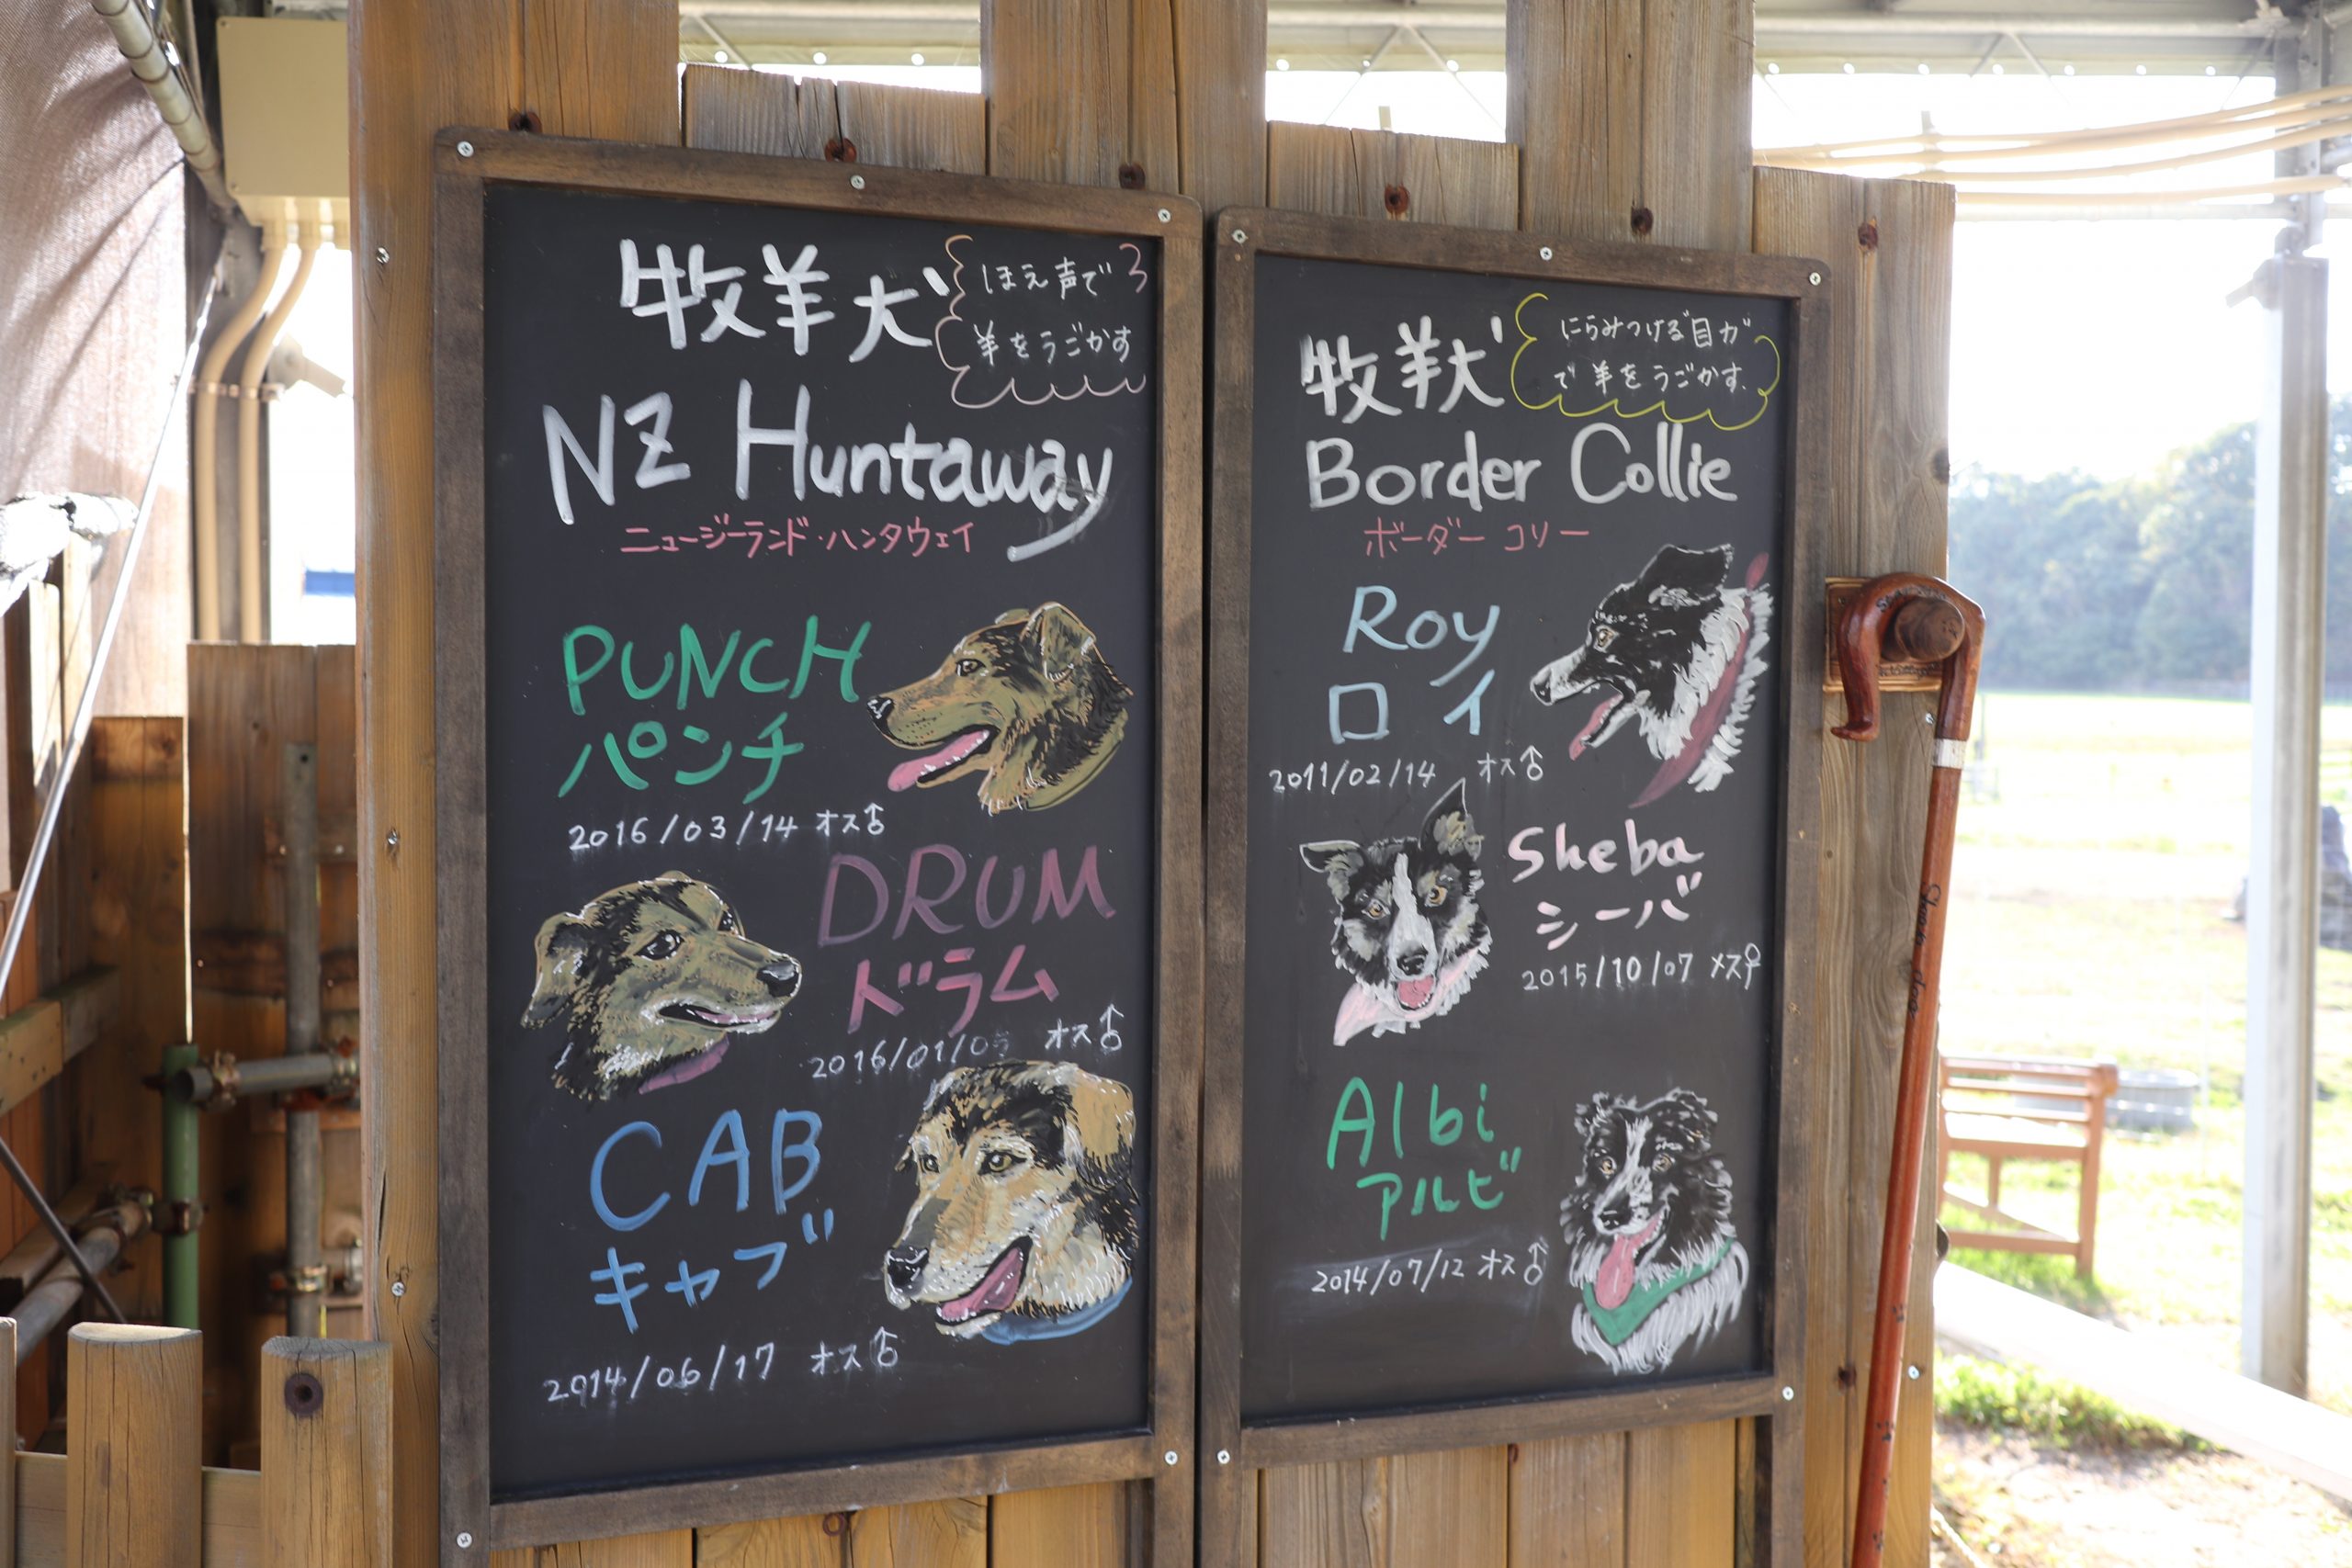 牧羊犬
ほえ声で
羊をうごかす
NZ Huntaway
ニュージーランド・ハンタウェイ
PUNCH
パンチ
2016/03/14 オス♂
DRUM
ドラム
2016/01/05 オス♂
CAB
キャブ
2014/06/17 オス♂
牧羊犬
にらみつける目力
で羊をうごかす.
Border Collie
ボーダー コリー
Roy
ロイ
2011/02/14 オス♂
Sheba
シーバ
2015/10/07 メス♀
Albi
アルビ
2014/07/12 オス♂